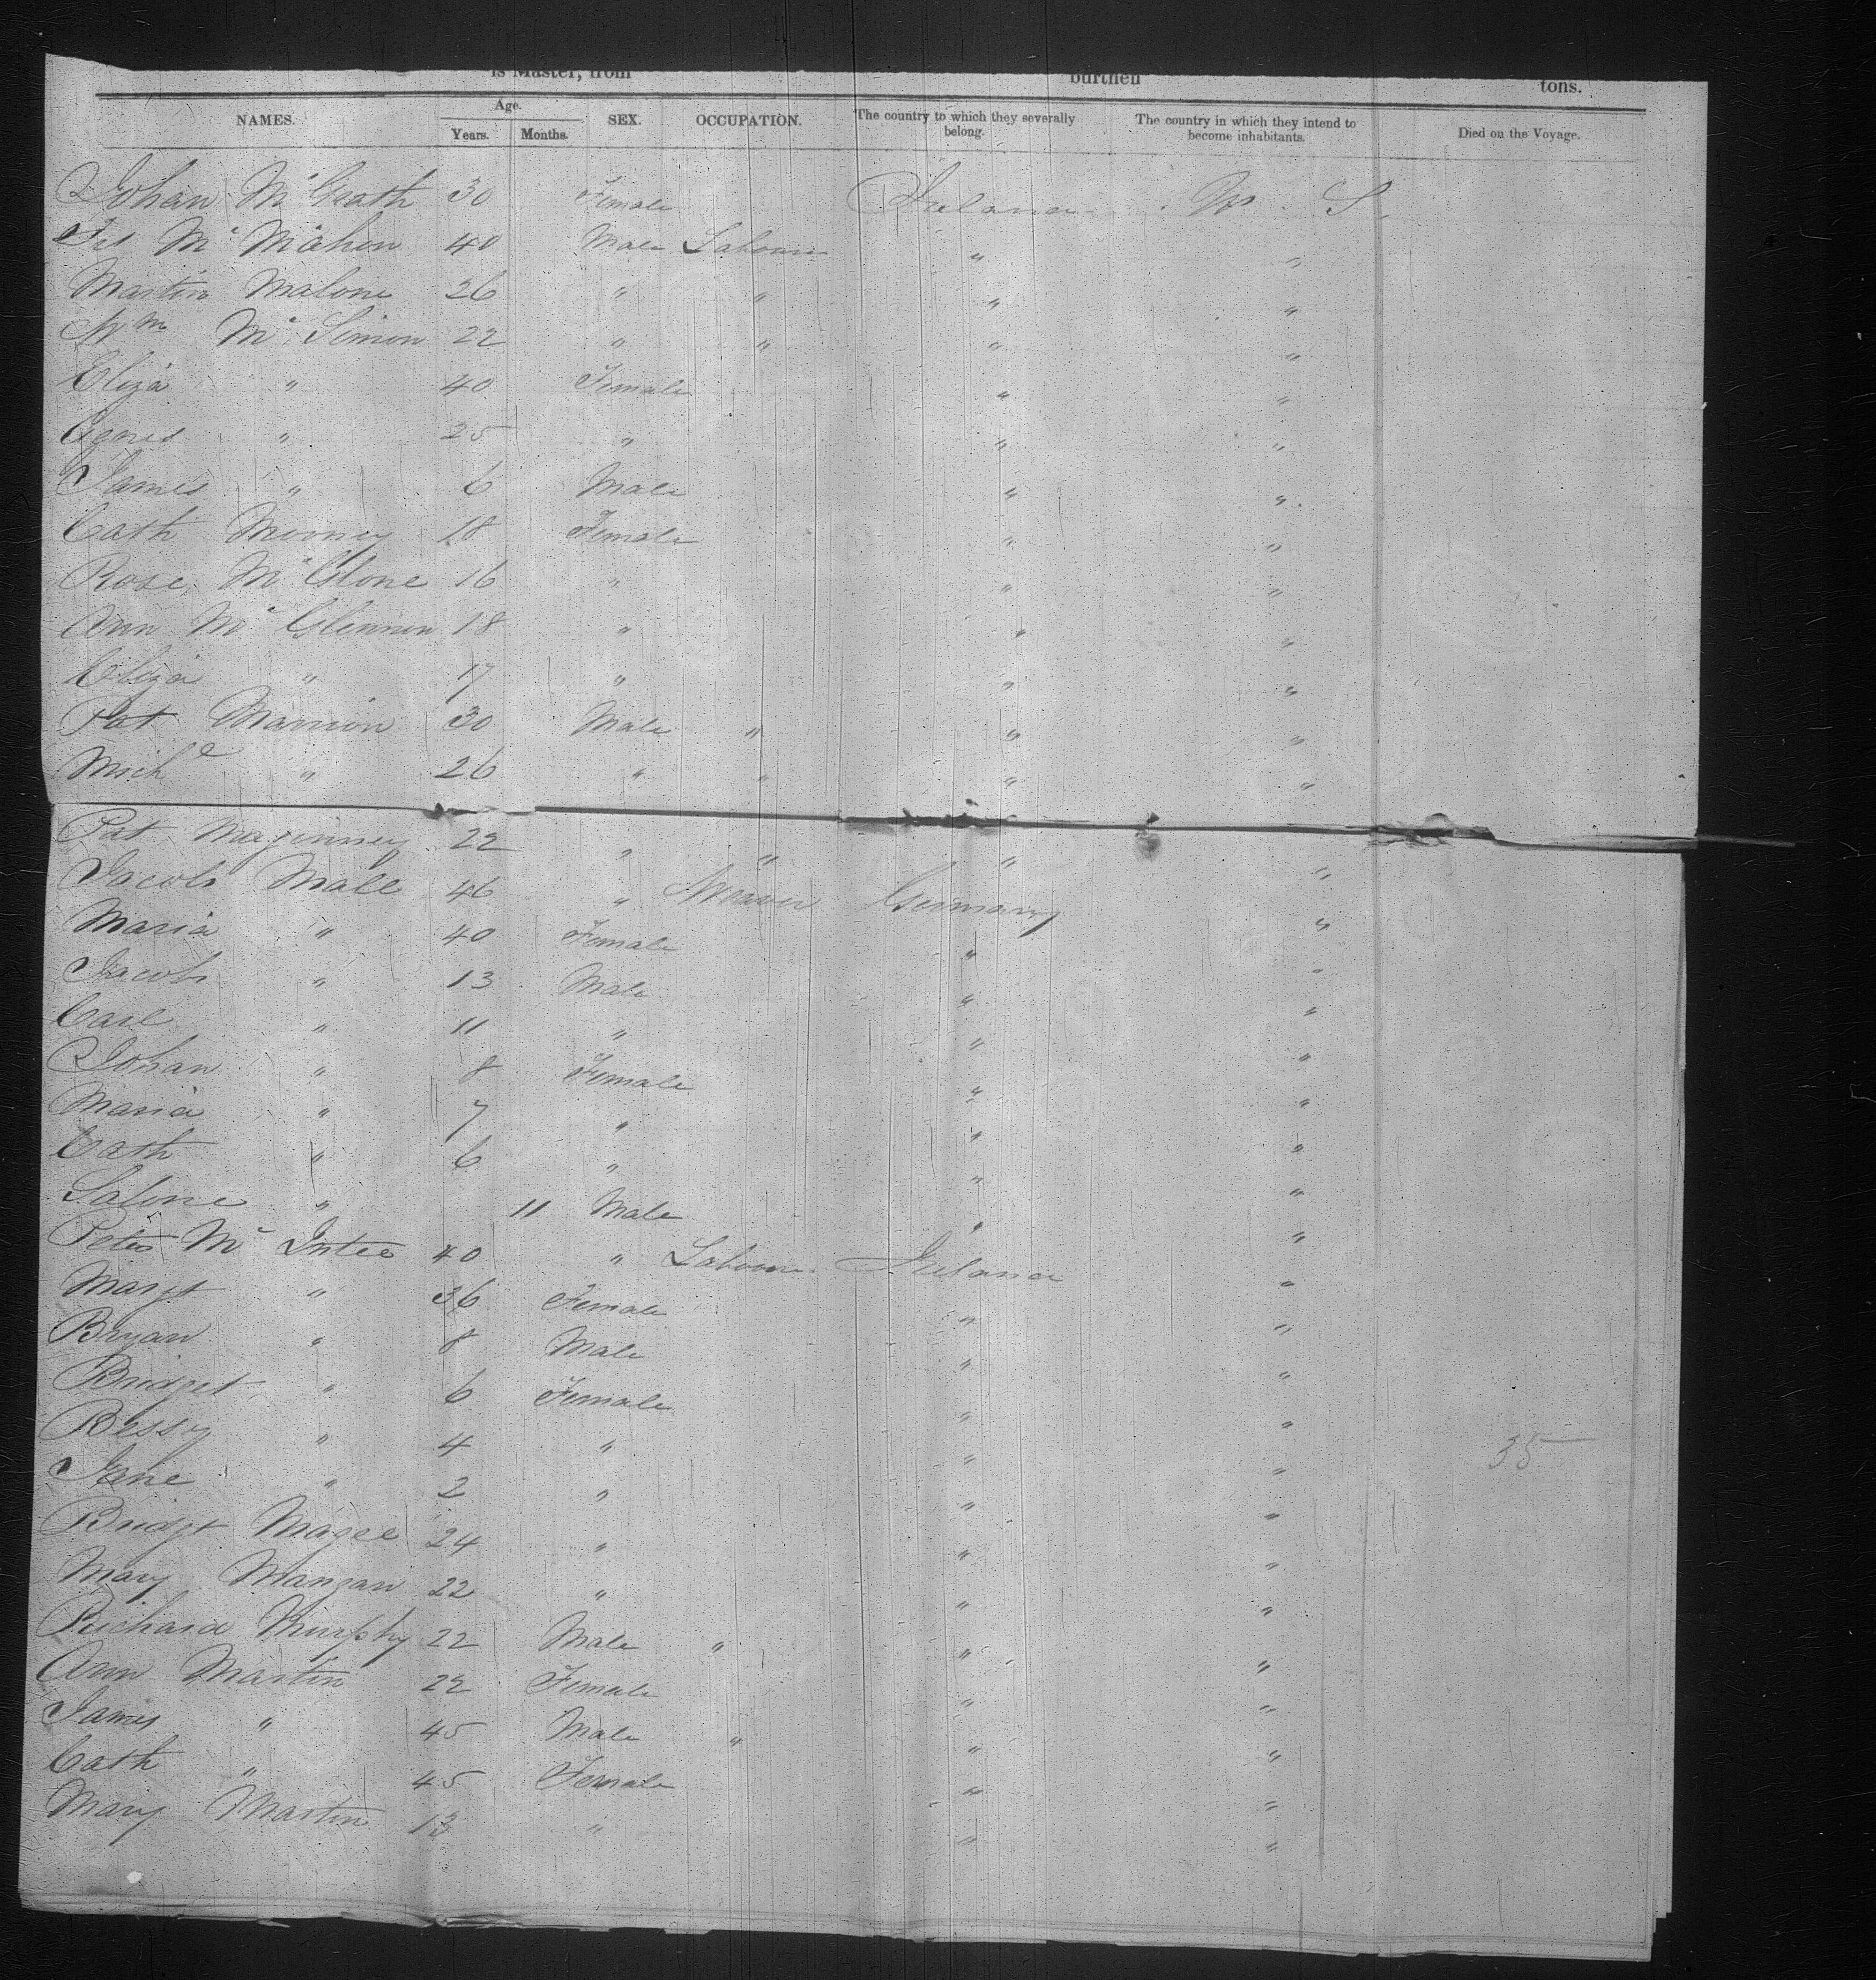 is Master, from burthen tons.
NAMES. Age. Years. Months. SEX. OCCUPATION. The country to which they severally belong. The country in which they intend to become inhabitants. Died on the Voyage.
Johan McGrath 30 Female Ireland U. S.
McMahon 40 Male Labourer " "
Martin Malone 26 " " " "
Wm McSimon 22 " " " "
Eliza " 40 Female " "
Agnes " 25 " " "
James " 6 Male " "
Cath Mooney 18 Female " "
Rose McGlone 16 " " "
Ann McGlennon 18 " " "
Eliza " 17 " " "
Pat Marrion 30 Male " " "
Miche " 26 " " " "
Pat Maginney 22 " " " "
Jacob Mall 46 " Weaver Germany "
Maria " 40 Female " "
Jacob " 13 Male " "
Carl " 11 " " "
Johan " 8 Female " "
Maria " 7 " " "
Cath " 6 " " "
Salone " 11 Male " "
Peter McIntee 40 " Labourer Ireland "
Margt " 36 Female " "
Bryan " 8 Male " "
Bridget " 6 Female " "
Bessy " 4 " " " 35
Jane " 2 " " "
Bridgt Magee 24 " " "
Mary Mangan 22 " " "
Richard Murphy 22 Male " " "
Ann Martin 22 Female " "
James " 45 Male " " "
Cath " 45 Female " "
Mary Martin 13 " " "